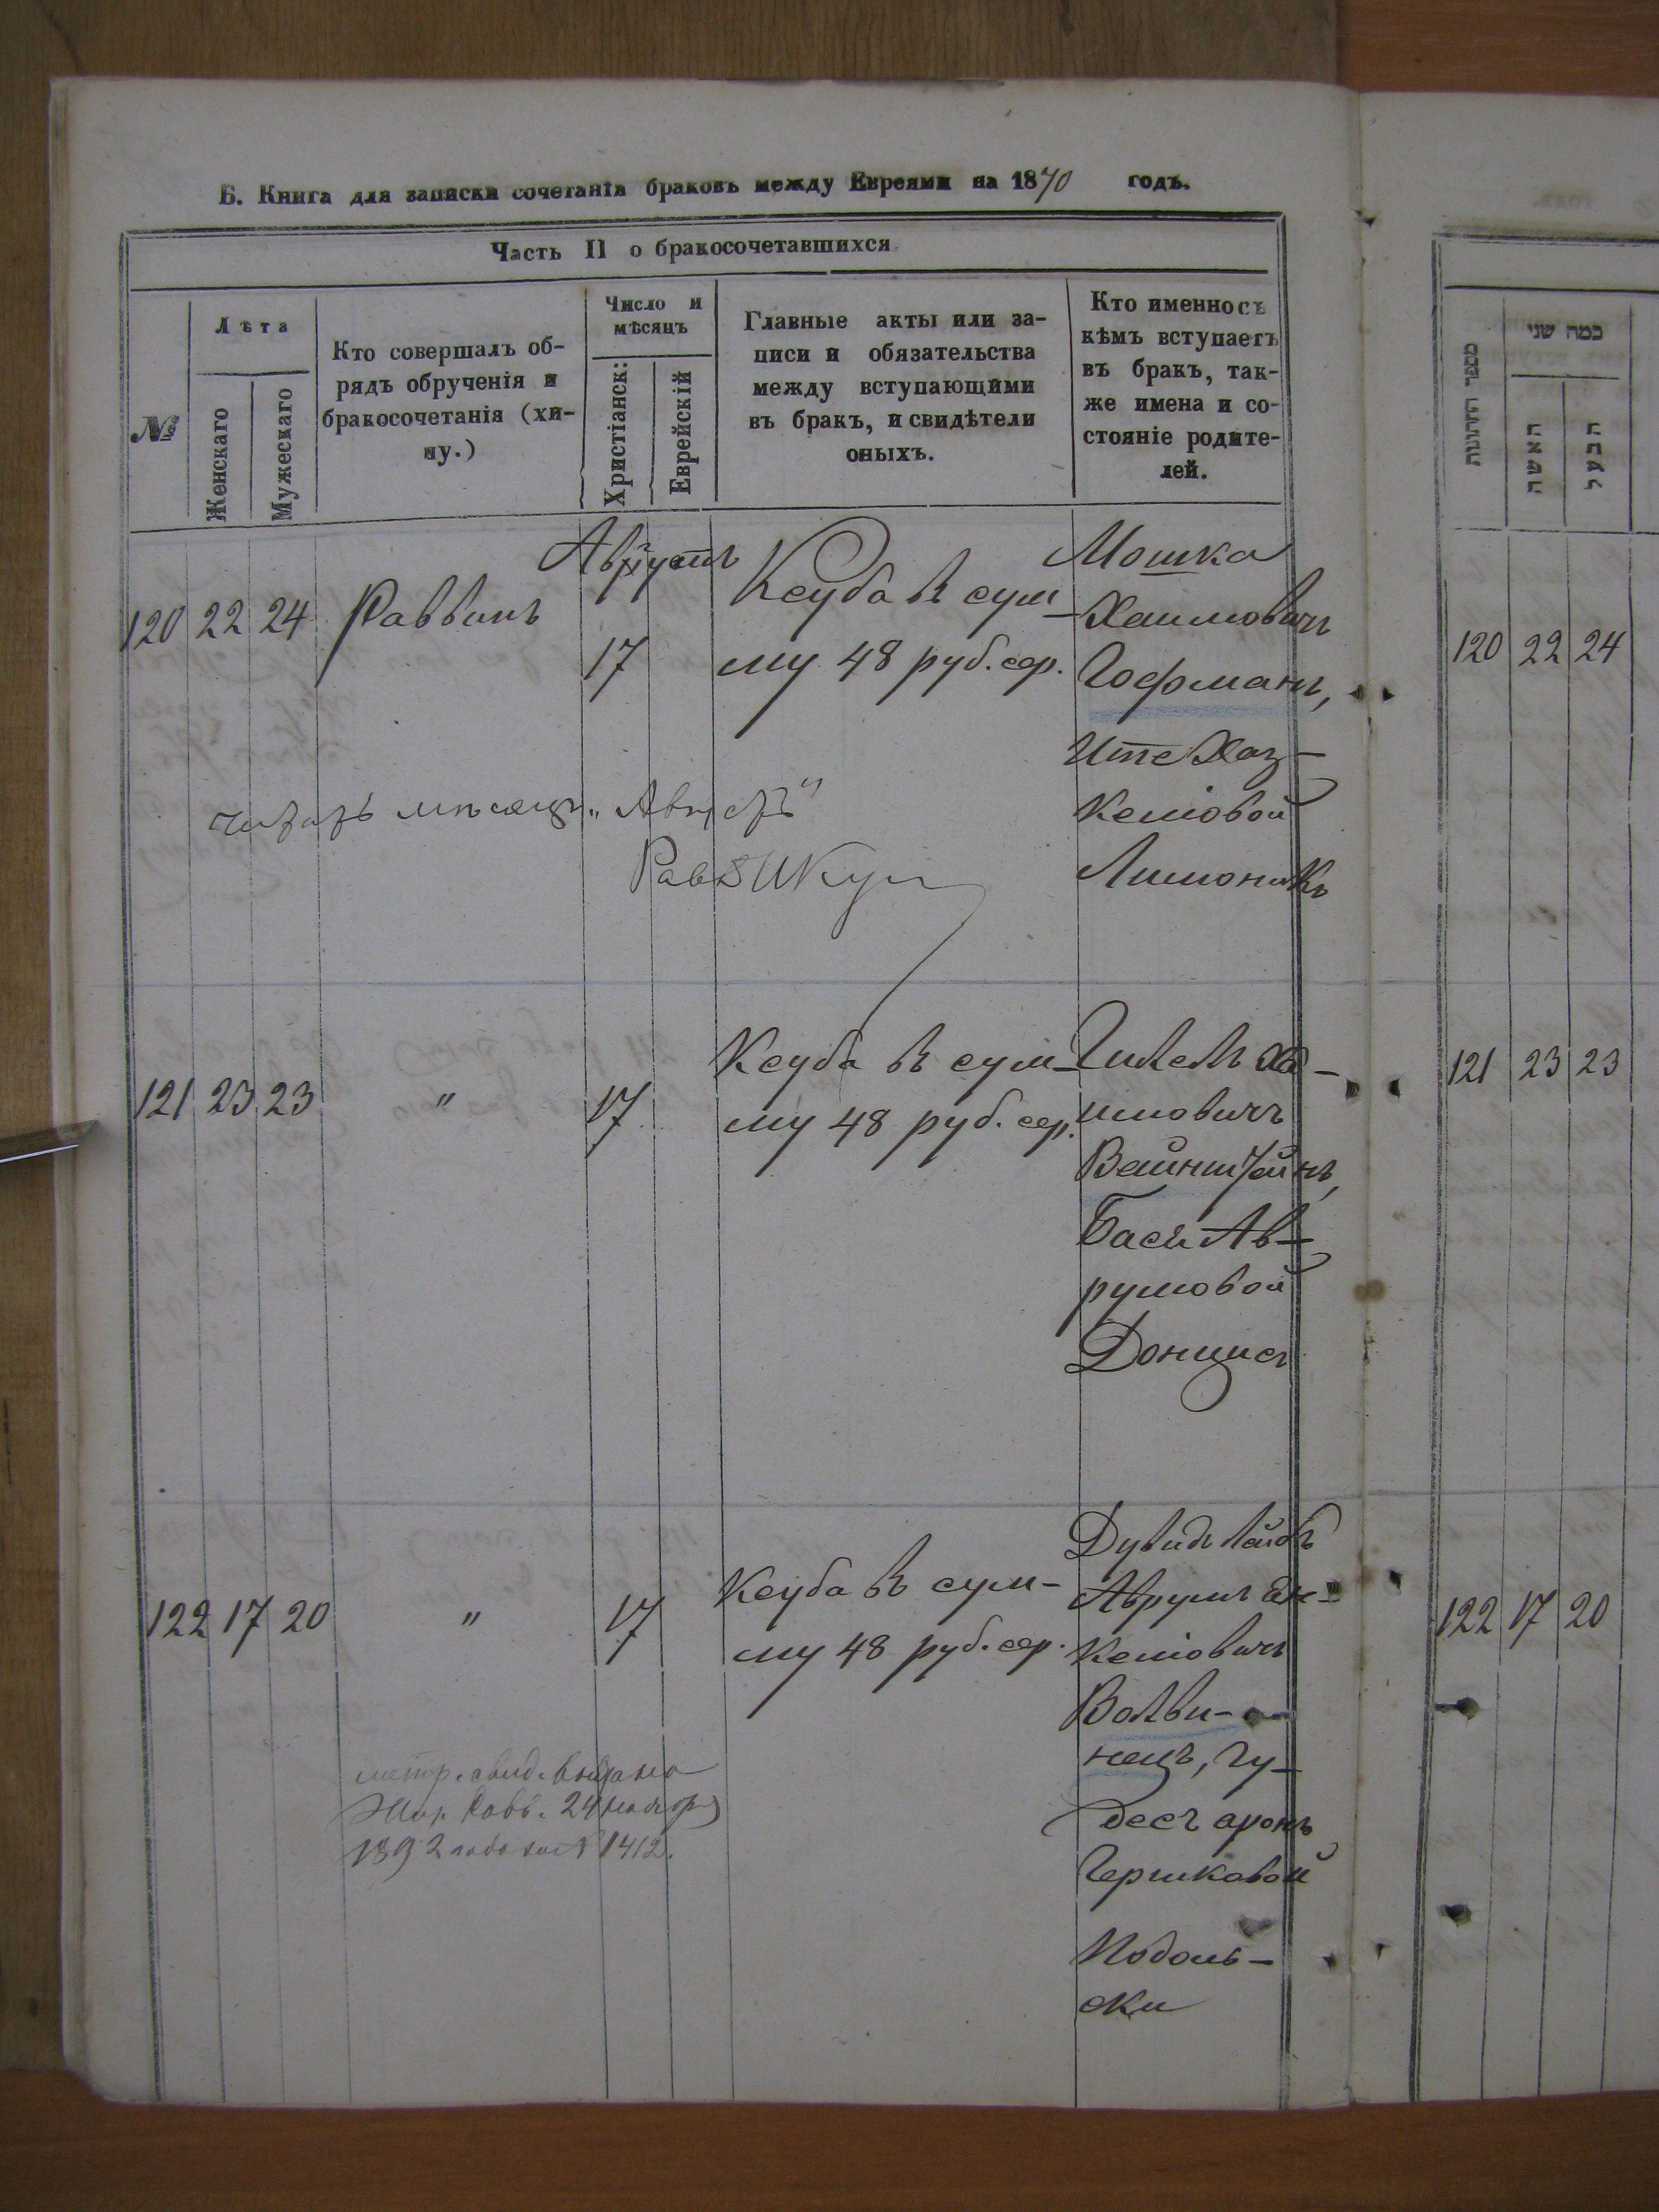 Б. Книга для записки сочетанія браковъ между Евреями на 1870 годъ.
Часть II о бракосочетавшихся.
№
Лѣта
Женскаго
Мужескаго
Кто совершалъ об-
рядъ обрученія и
бракосочетанія (хи-
пу.)
Число и
мѣсяцъ
Христіанск:
Еврейскій
Главные акты или за-
писи и обязательства
между вступающими
въ бракъ, и свидѣтели
оныхъ.
Кто именно съ
кѣмъ вступаетъ
въ бракъ, так-
же имена и со-
стояніе родите-
лей.
Августъ
120 22 24 Раввинъ
17
Ксуба въ сум-
му 48 руб. сер.
Мошка
Хаимовичъ
Гофманъ,
Ите Хаз-
келіовой
Лимоникъ
читать мѣсяцъ „Августъ"
121 23 23 " 17
Ксуба въ сум-
му 48 руб. сер.
Гилель Ха-
имовичъ
Вайнштейнъ,
Бася Ав-
румовой
Донцисъ
122 17 20 " 17
Ксуба въ сум-
му 48 руб. сер.
Дувидъ Лейбъ
Аврумъ
келіовичъ
Волви-
нецъ, Гу-
десъ
Гершковой
Подоль-
ски
метр. свид. выдано
24
1892 года за № 1412.
מספר החתונות
כמה שני
האשה
הבעל
120 22 24
121 23 23
122 17 20